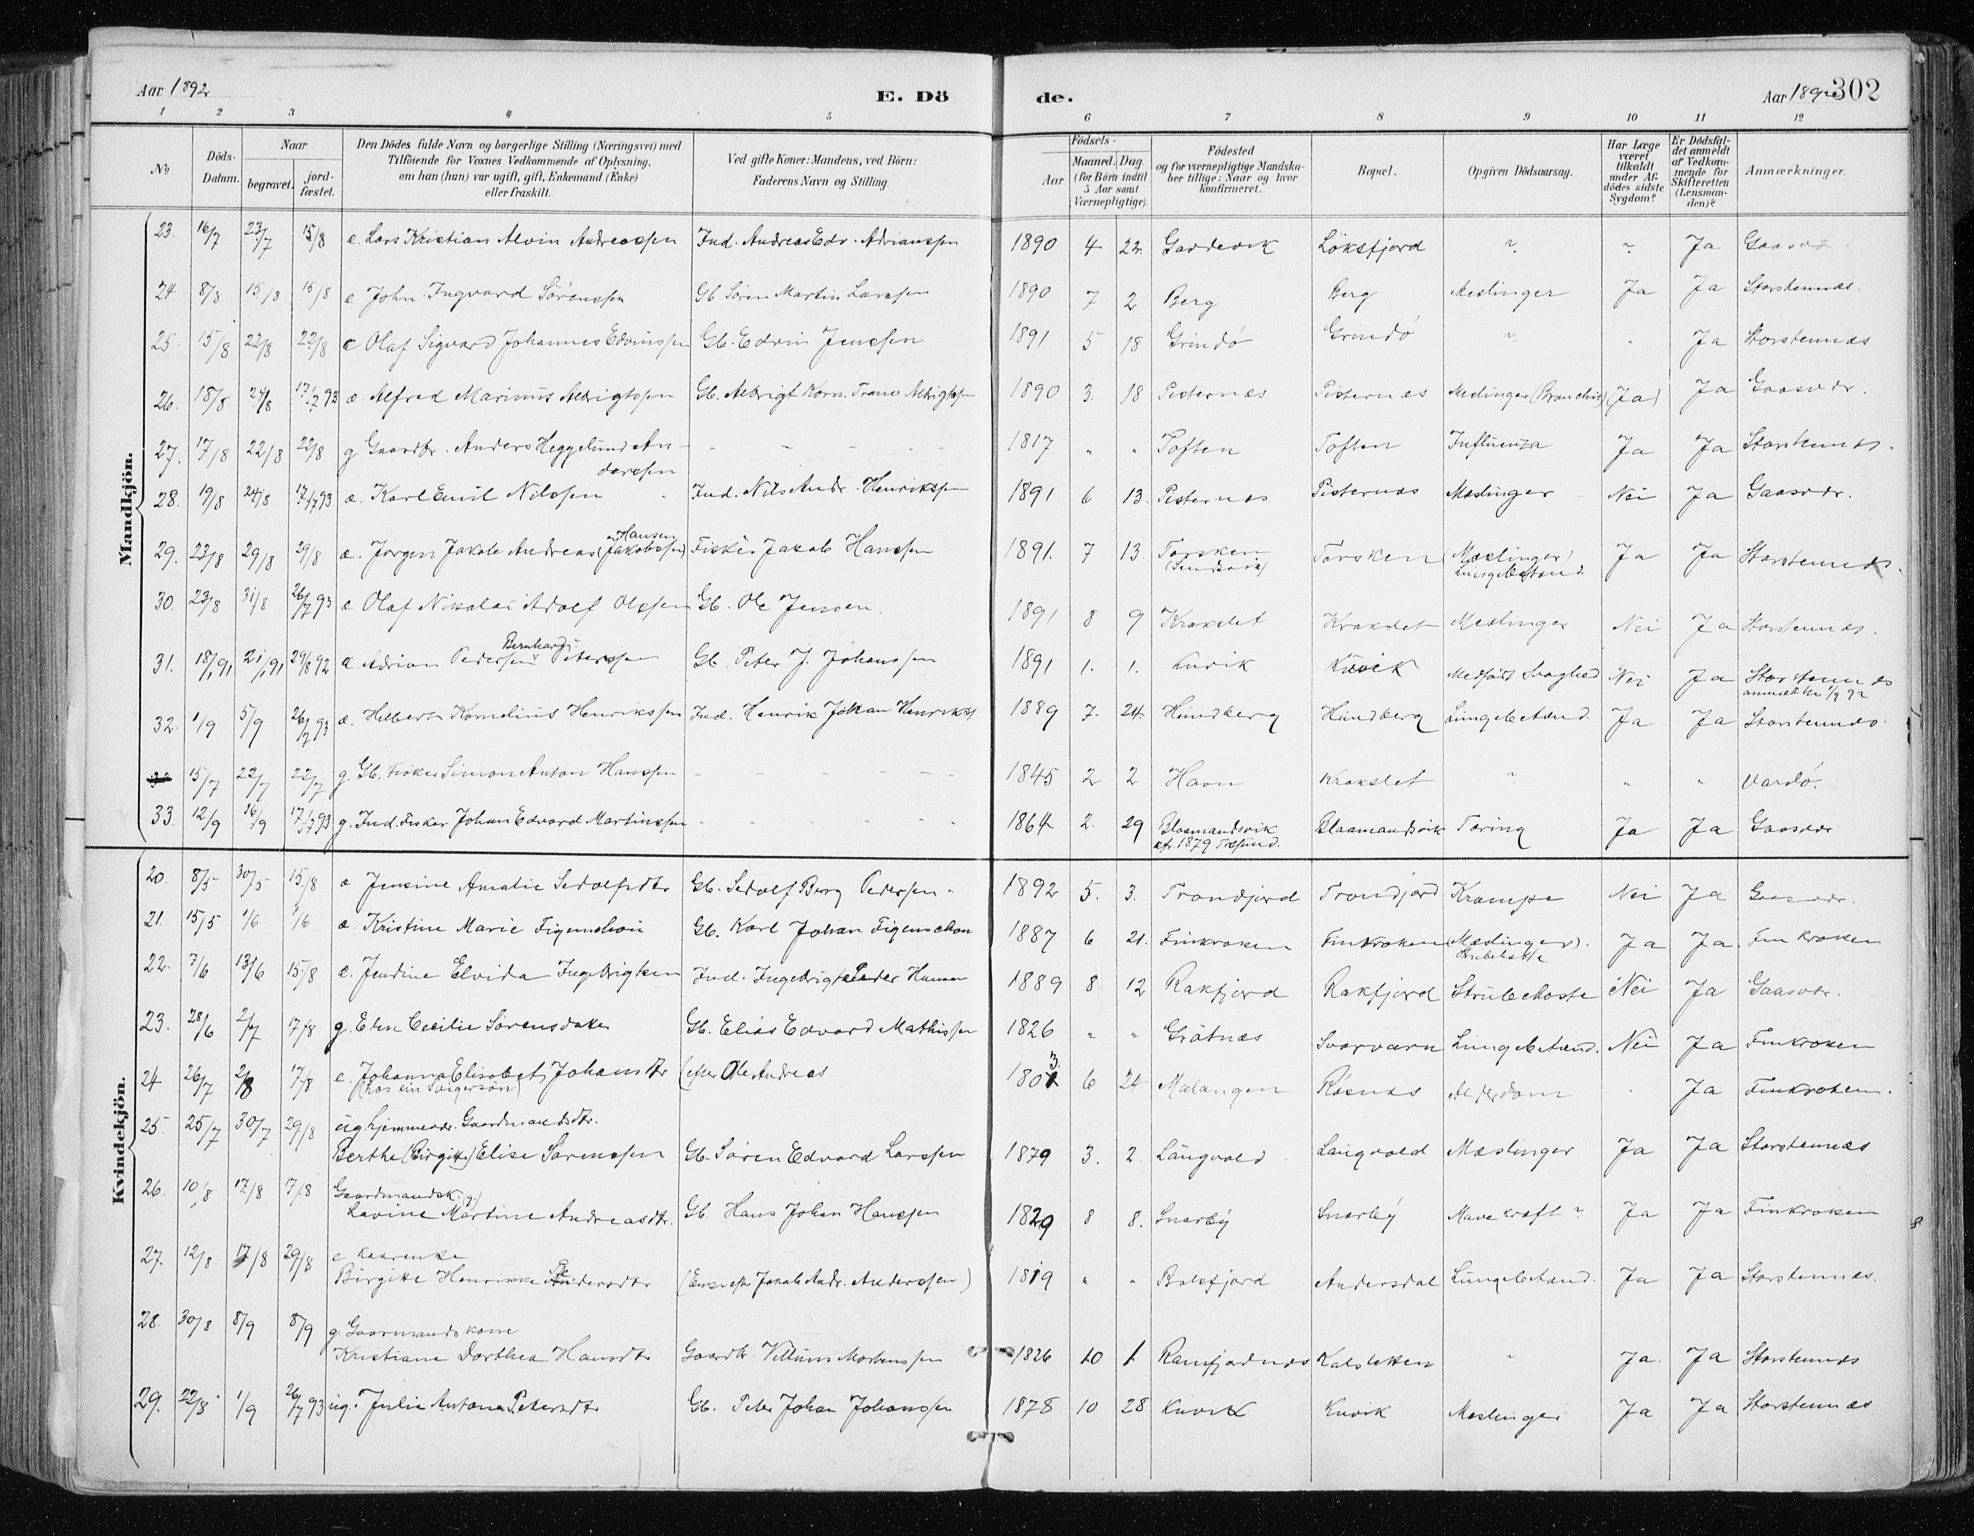 Aar 1892
E. Dö
de.
Aar 189
302
1 2 3 4 5 6 7 8 9 10 11 12
No
Döds-Datum.
Naar
begravet.
jord-fæstet.
Den Dödes fulde Navn og borgerlige Stilling (Næringsvei) med
Tilföiende for Voxnes Vedkommende af Oplysning,
om han (hun) var ugift, gift, Enkemand (Enke)
eller fraskilt.
Ved gifte Koner: Mandens, ved Börn:
Faderens Navn og Stilling.
Födsels-
Aar
Maaned.
Dag.
(for Börn indtil
5 Aar samt
Værnepligtige).
Födested
og for værnepligtige Mandska-
ber tillige: Naar og hvor
konfirmeret.
Bopæl.
Opgiven Dödsaarsag.
Har Læge
været
tilkaldt
under Af-
dödes sidste
Sygdom?
Er Dödsfal-
det anmeldt
af Vedkom-
mende for
Skifteretten
(Lensman-
den)?
Anmærkninger.
Mandkjön.
23. 16/7 23/7 15/8 e. Lars Kristian Alvin Andreassen Ind. Andreas Edv. Adrianssen 1890 4 22 Løksfjord " " Ja
24. 8/8 15/8 15/8 e John Ingvard Sörenssen Gb Søren Martin Larssen 1890 7 2 Berg Berg Meslinger Ja Ja Storstennæs.
25. 15/8 22/8 22/8 e Olaf Sigvard Johannes Edvinssen Gb. Edvin Jenssen 1891 5 18 Grindø Grindø " " Ja Storstennæs
26. 18/8 24/8 17/7 93 æ. Alfred Marinus Albrigtssen Gb. Albrigt Korn. Albrigtssen 1890 3. 18 Pisternæs Pisternæs Meslinger (Ja) Ja Gaasvær.
27. 17/8 22/8 22/8 g Gaardbr. Anders Heggelund An-
derssen - - - - 1817 " " Toften Toften Influenza Ja Ja Storstennæs.
28. 19/8 24/8 17/7 93 æ. Karl Emil Nilssen Ind. Nils Andr. Henrikssen 1891 6 13. Pisternæs Pisternæs Meslinger Nei Ja Gaasvær.
29. 23/8 29/8 29/8 æ. Jørgen Jakob Andreas Hansen
(Jakobssen) Fisker Jakob Hanssen 1891. 7 13. Torsken Torsken (Meslinger)
Lungebetænd. Ja Ja Storstennæs.
30. 23/8 31/8 26/7 93 æ Olaf Nikolai Adolf Olssen Gb. Ole Jensen. 1891 8 9 Krakslet Krakslet Meslinger Nei Ja Storstennæs.
31. 18/1 91 21/1 91 29/8 92 æ Adrian Pedersen Bernhard Peterssen Gb. Peter J. Johanssen 1891 1. 1. Kuvik Kuvik Medfødt Svaghed Nei Ja Storstennæs
32. 1/9 5/9 26/7 93 æ. Helbert Kornelius Henrikssen Ind. Henrik Johan Henrikss 1889 7. 24 Hundberg Hundberg Lungebetænd. Ja Ja Storstennæs.
15/7 22/7 22/7 g. Gb. Fisker Simon Anton Hanssen - - - - 1845 2 2 Havn Krakslet " " " Vardö.
33. 12/9 16/9 17/7 93 g. Ind. Fisker Johan Edvard Martinssen - - - 1864 2. 29 Blaamandsvik
1879 Blaamandsvik Tæring Ja Ja Gaasvær
Kvindekjön.
20. 8/5 30/5 15/8 æ Jensine Amalie Sedolfsdtr Gb. Sedolf Berg Pedersen. 1892 5. 3. Trondjord Trondjord Krampe Nei Ja Gaasvær.
21. 15/5 1/6 1/6 æ. Kristine Marie Figenschou Gb. Karl Johan Figenschou 1887 6 21. Finkroken Finkroken (Meslinger).
Strubehoste Ja Ja. Finkroken
22. 7/6 13/6 15/8 æ. Jendine Elvida Ingebrigtsen Ind. Ingebrigt Peder 1889 8. 12 Rakfjord Rakfjord Strubehoste Nei Ja Gaasvær.
23. 28/6 2/7 17/8 g. Elen Cecilie Sørensdatter Gb. Elias Edvard Mathissen 1826 " " Grötnæs Svarvarn Lungebetænd. Nei Ja Finkroken
24 26/7 2/8 17/8 e. Johanna Elisabet Johansdtr
(hos sin Svigersøn) (efter Ole Andreas 1803 6 24 Malangen Røsnæs Alderdom Ja Finkroken.
25. 25/7 30/7 29/8 ug. hjemmevær. Gaardmandsdtr.
Berthe (Birgitte) Elise Sørenssen Gb. Søren Edvard Larssen 1879 3. 2. Langvold Langvold Meslinger Ja Ja Storstennæs
26. 10/8 17/8 17/8 Gaardmandsk. (g.)
Lavine Martine Andreasdtr. Gb. Hans Johan Hanssen 1829 8 8. Snarby Snarby Mavekræft? Ja Ja Finkroken
27. 12/8 17/8 29/8 e Kaarenke
Birgitte Henrikke Andersdtr (Enke eft. Jakob Andr. Anderssen) 1819 " " Balsfjord Andersdal Lungebetænd. Ja Ja Storstennæs.
28. 30/8 8/9 8/9 g. Gaarmandskone
Kristiane Dorthea Hansdtr Gaardbr. Villum Mortenssen 1826 10 1 Ramfjordnæs Kalsletten " Ja. Ja Storstennæs
29. 22/8 1/9 26/7 93 ug. Julie Antona Petersdtr Gb. Peter Johan Johanssen 1878 10 28 Kuvik Kuvik Meslinger Ja Ja Storstennæs